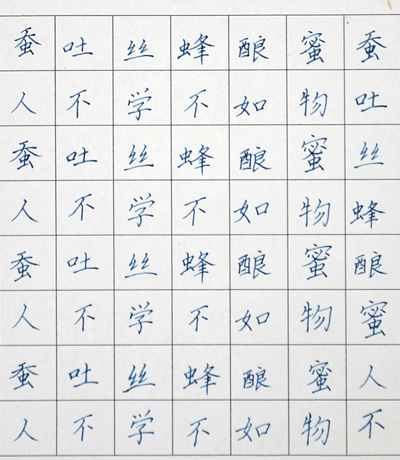 蚕吐丝蜂酿蜜蚕
人不学不如物吐
蚕吐丝蜂酿蜜丝
人不学不如物蜂
蚕吐丝蜂酿蜜酿
人不学不如物蜜
蚕吐丝蜂酿蜜人
人不学不如物不